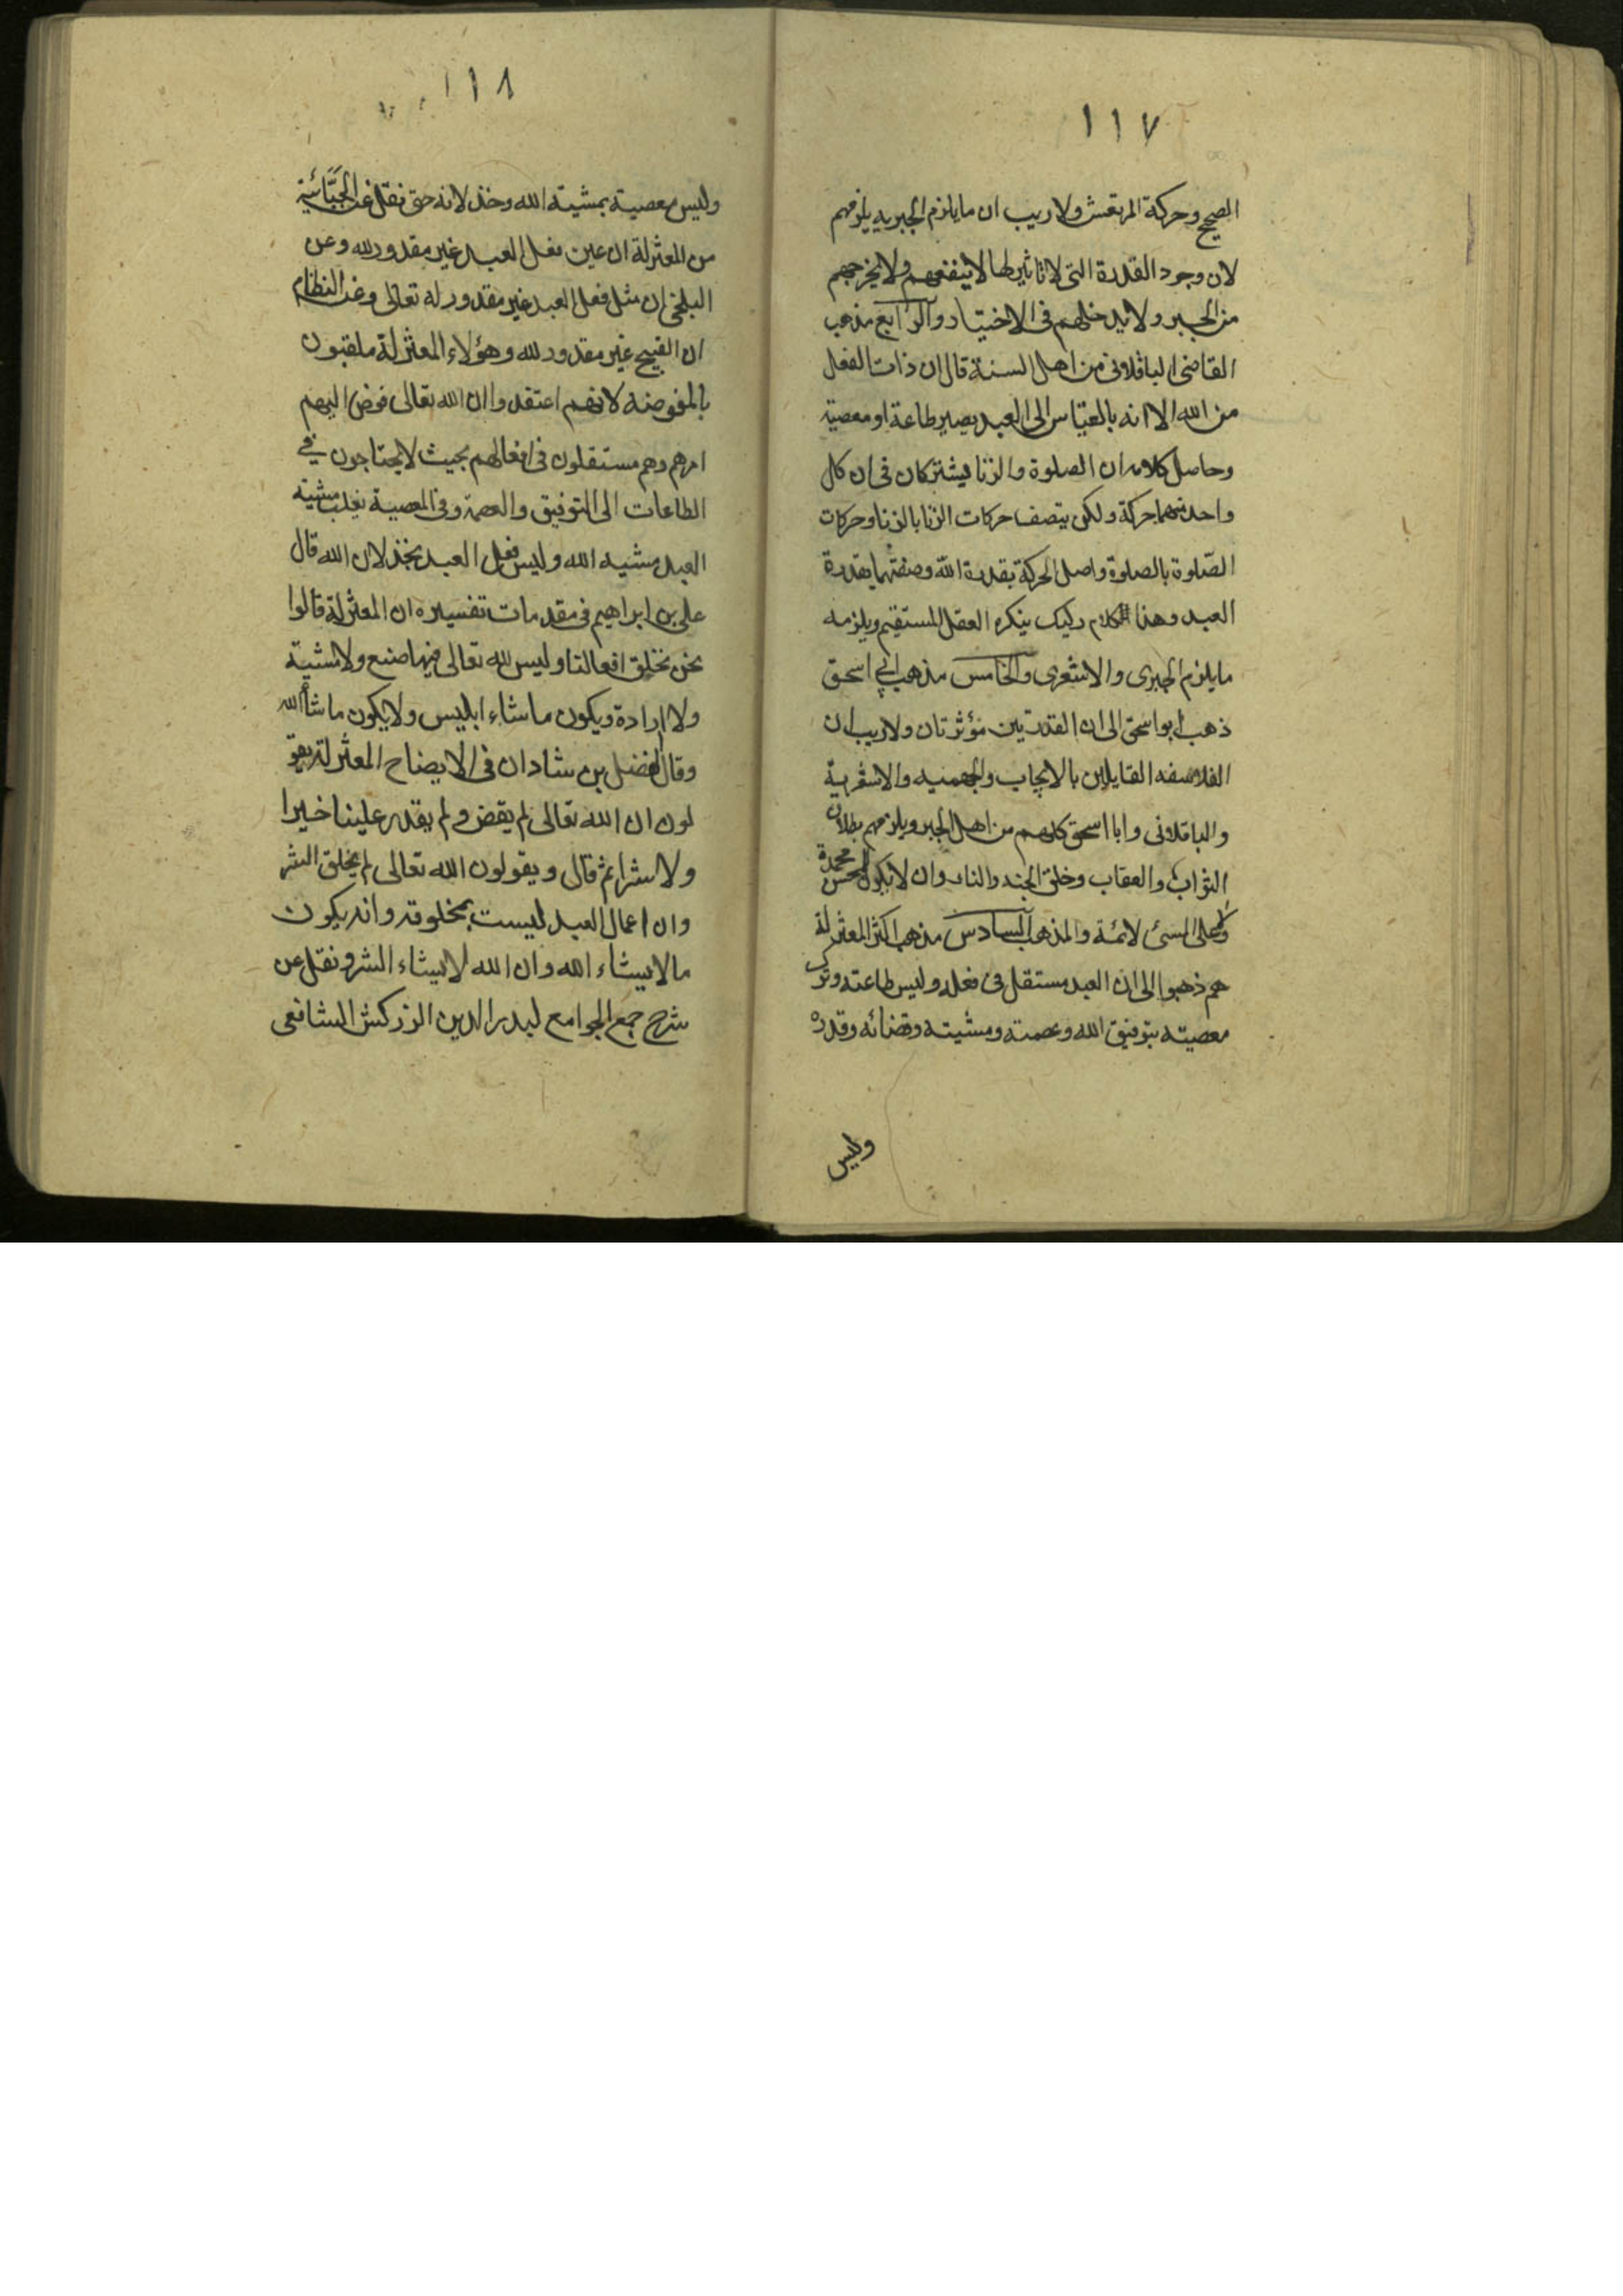 ١١٧
الصحيح وحركة المرتعش ولا ريب ان ما يلزم الجبريه يلزمهم
لان وجود القدرة التى لا تاثير لها لا ينفعهم ولا يخرجهم
من الجبر ولا يدخلهم فى الاختيار والرابع مذهب
القاضى الباقلانى من اهل السنة قال ان ذات الفعل
من الله الا انه بالقياس الى العبد يصير طاعة او معصية
وحاصل كلامه ان الصلوة والزنا يشتركان فى ان كل
واحد منهما حركة ولكن يتصف حركات الزنا بالزنا وحركات
الصّلوة بالصلوة واصل الحركة بقدرة اللّه وصفتهما بقدرة
العبد وهذا الكلام ركيك ينكره العقل المستقيم ويلزمه
ما يلزم الجبرى والاشعرى والخامس مذهب ابي اسحق
ذهب ابو اسحق الى ان القدرتين مؤثرتان ولا ريب ان
الفلاسفه القايلين بالايجاب والجهميه والاشعرية
والباقلانى وابا اسحق كلهم من اهل الجبر ويلزمهم بطلان
الثواب والعقاب وخلق الجنه والنار وان لا يكون للمحسن محمدة
ولا على المسئ لائمة والمذهب السادس مذهب اكثر المعتزلة
هم ذهبوا الى ان العبد مستقل فى فعله وليس طاعته وترك
معصيته بتوفيق الله وعصمته ومشيته وقضائه وقدره
وليس
١١٨
وليس معصية بمشيته الله وخذلانه حتى نقل عن الجبّائية
من المعتزلة ان عين فعل العبد غير مقدور لله وعن
البلخى ان مثل فعل العبد غير مقدور له تعالى وعن النظام
ان القبيح غير مقدور لله وهؤلاء المعتزلة ملقبون
بالمفوضه لانهم اعتقدوا ان الله تعالى فوض اليهم
امرهم وهم مستقلون فى افعالهم بحيث لا يحتاجون في
الطاعات الى التوفيق والعصمة وفى المعصية يغلب مشيته
العبد مشيه الله وليس فعل العبد بخذلان الله قال
على بن ابراهيم فى مقدمات تفسيره ان المعتزلة قالوا
نحن نخلق افعالنا وليس لله تعالى فيها صنع ولا مشية
ولا ارادة ويكون ما شاء ابليس ولا يكون ما شاء الله
وقال الفضل بن شادان فى الايضاح المعتزلة يقو
لون ان الله تعالى لم يقض ولم يقدر علينا خيرا
ولا شرا ثم قال ويقولون الله تعالى لم يخلق الشر
وان اعمال العبد ليست بمخلوقه وانه يكون
ما لا يشاء الله وان الله لا يشاء الشر ونقل عن
شرح جمع الجوامع لبدر الدين الزركش الشافعى